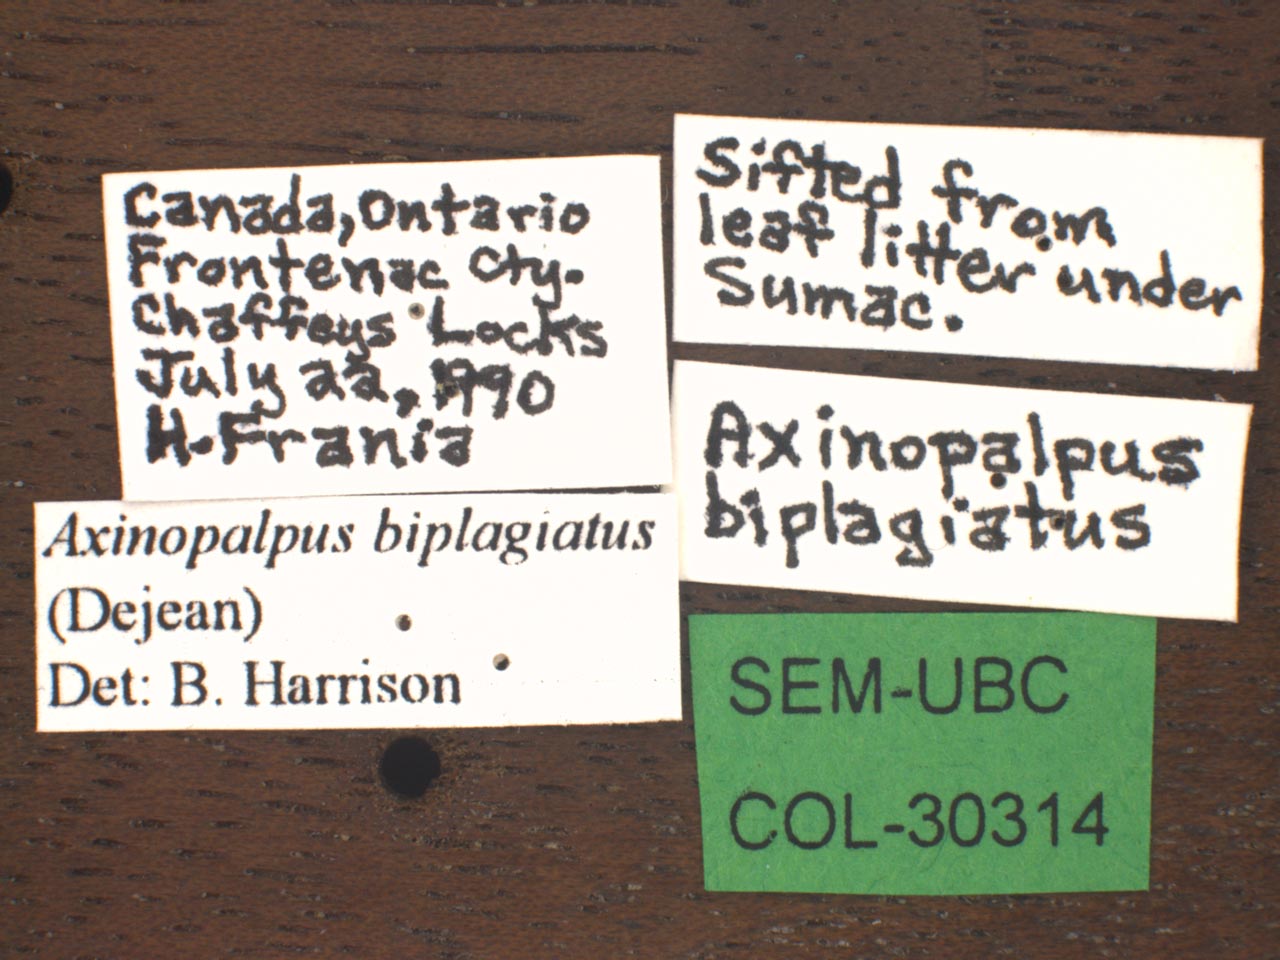 Canada, Ontario
Frontenac Cty.
Chaffeys Locks
July 22, 1990
H. Frania
Sifted from
leaf litter under
Sumac.
Axinopalpus
biplagiatus
Axinopalpus biplagiatus
(Dejean)
Det: B. Harrison
SEM-UBC
COL-30314